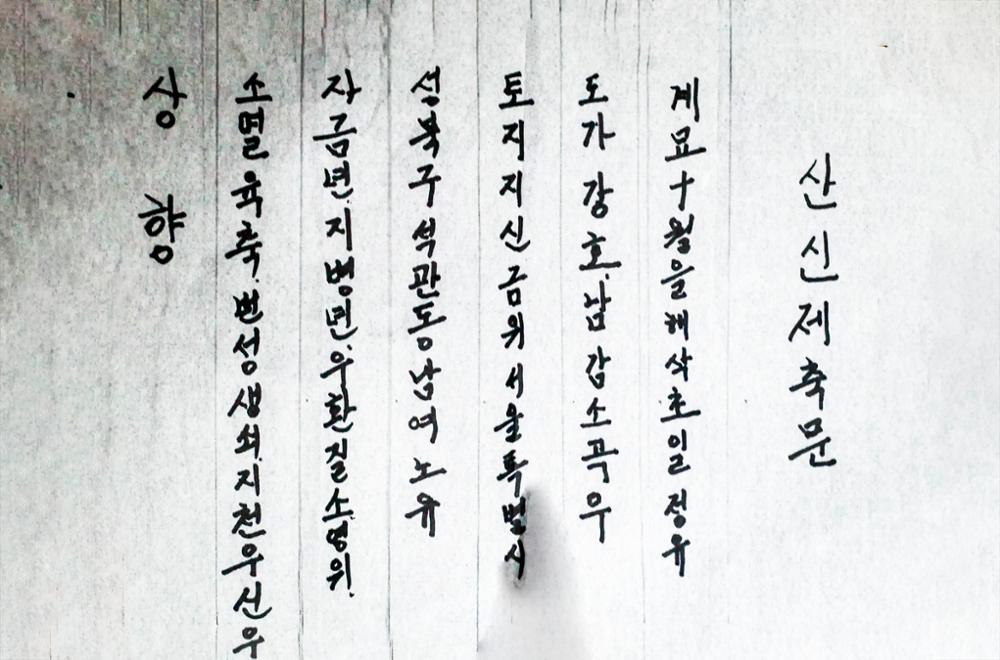 산신제축문
계묘十월을해삭초일정유
도가강호남감소고우
토지지신금위서울특별시
성북구석관동남여노유
자금년지병년우환질소영위
소멸육축번성생쇠지천우신우
상향